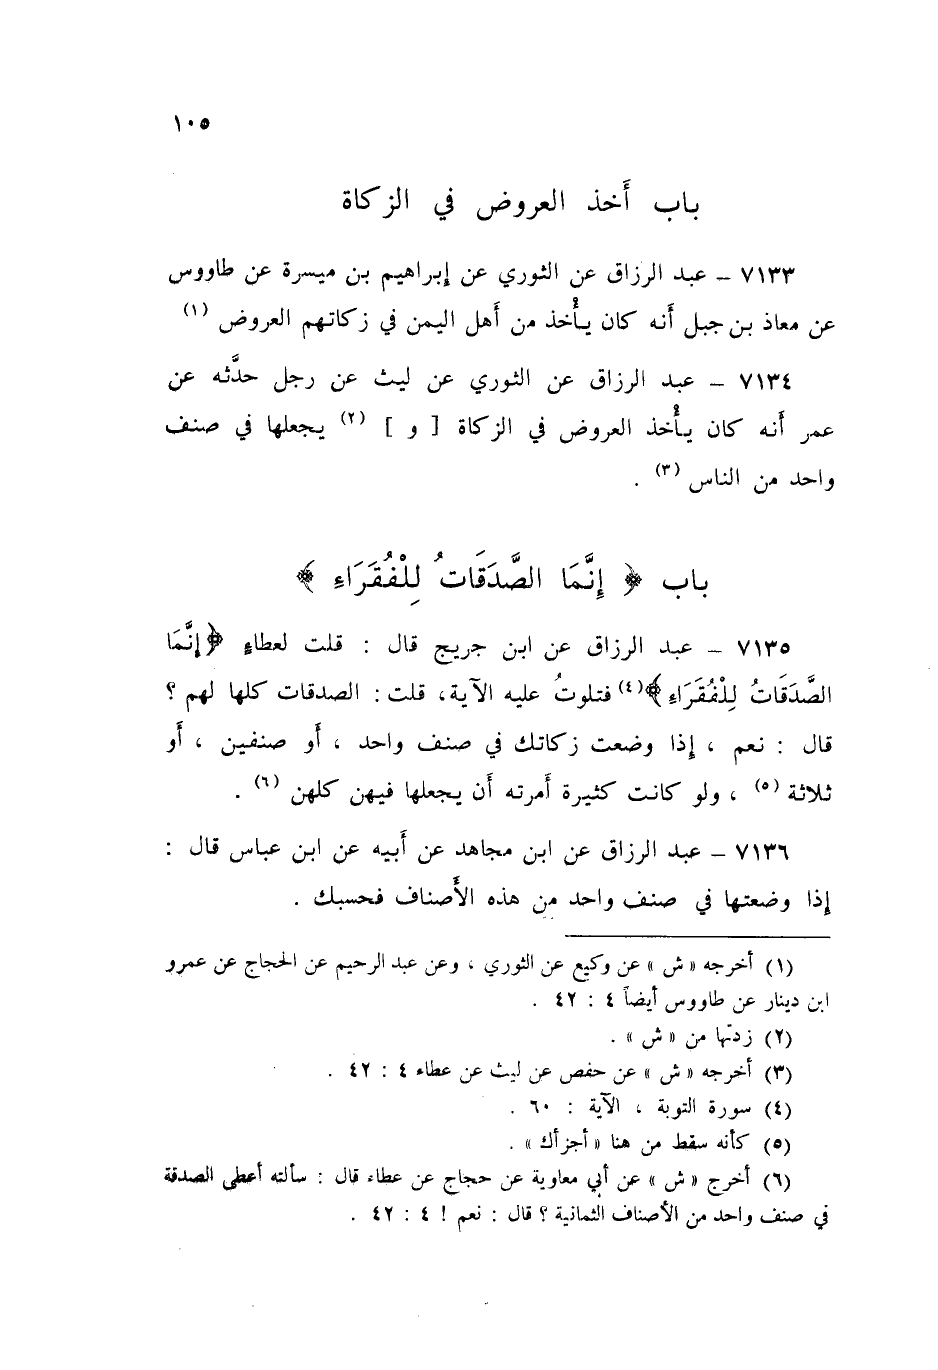 ١٠٥
باب أَخذ العروض في الزكاة
٧١٣٣ – عبد الرزاق عن الثوري عن إبراهيم بن ميسرة عن طاووس
عن معاذ بن جبل أَنه كان يأْخذ من أَهل اليمن في زكاتهم العروض (١)
٧١٣٤ – عبد الرزاق عن الثوري عن ليث عن رجل حدَّثه عن
عمر أَنه كان يأْخذ العروض في الزكاة [ و ] (٢) يجعلها في صنف
واحد من الناس (٣) .
باب ﴿ إِنَّمَا الصَّدَقَاتُ لِلْفُقَرَاءِ ﴾
٧١٣٥ – عبد الرزاق عن ابن جريج قال : قلت لعطاءٍ ﴿إِنَّمَا
الصَّدَقَاتُ لِلْفُقَرَاءِ﴾(٤) فتلوتُ عليه الآية، قلت : الصدقات كلها لهم ؟
قال : نعم ، إذا وضعت زكاتك في صنف واحد ، أَو صنفين ، أَو
ثلاثة (٥) ، ولو كانت كثيرة أَمرته أَن يجعلها فيهن كلهن (٦) .
٧١٣٦ – عبد الرزاق عن ابن مجاهد عن أَبيه عن ابن عباس قال :
إذا وضعتها في صنف واحد من هذه الأَصناف فحسبك .
(١) أخرجه « ش » عن وكيع عن الثوري ، وعن عبد الرحيم عن الحجاج عن عمرو
ابن دينار عن طاووس أيضاً ٤ : ٤٢ .
(٢) زدتها من « ش » .
(٣) أخرجه « ش » عن حفص عن ليث عن عطاء ٤ : ٤٢ .
(٤) سورة التوبة ، الآية : ٦٠ .
(٥) كأنه سقط من هنا « أجزأك » .
(٦) أخرج « ش » عن أبي معاوية عن حجاج عن عطاء قال : سألته أعطى الصدقة
في صنف واحد من الأصناف الثمانية ؟ قال : نعم ! ٤ : ٤٢ .